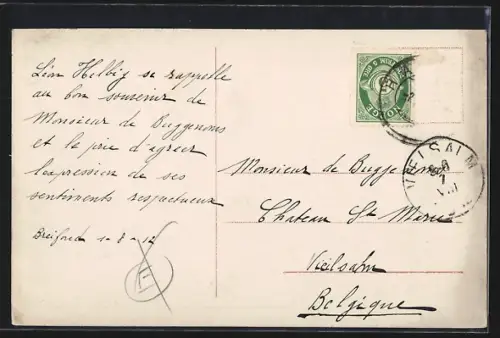 Léon Helbig se rappelle
au bon souvenir de
Monsieur de Buggenoms
et le prie d'agréer
l'expression de ses
sentiments respectueux
1-8-12
NORGE
FEM 5 ØRE
VIELSALM
8
Monsieur de Buggenoms
Chateau Ste Marie
Vielsalm
Belgique